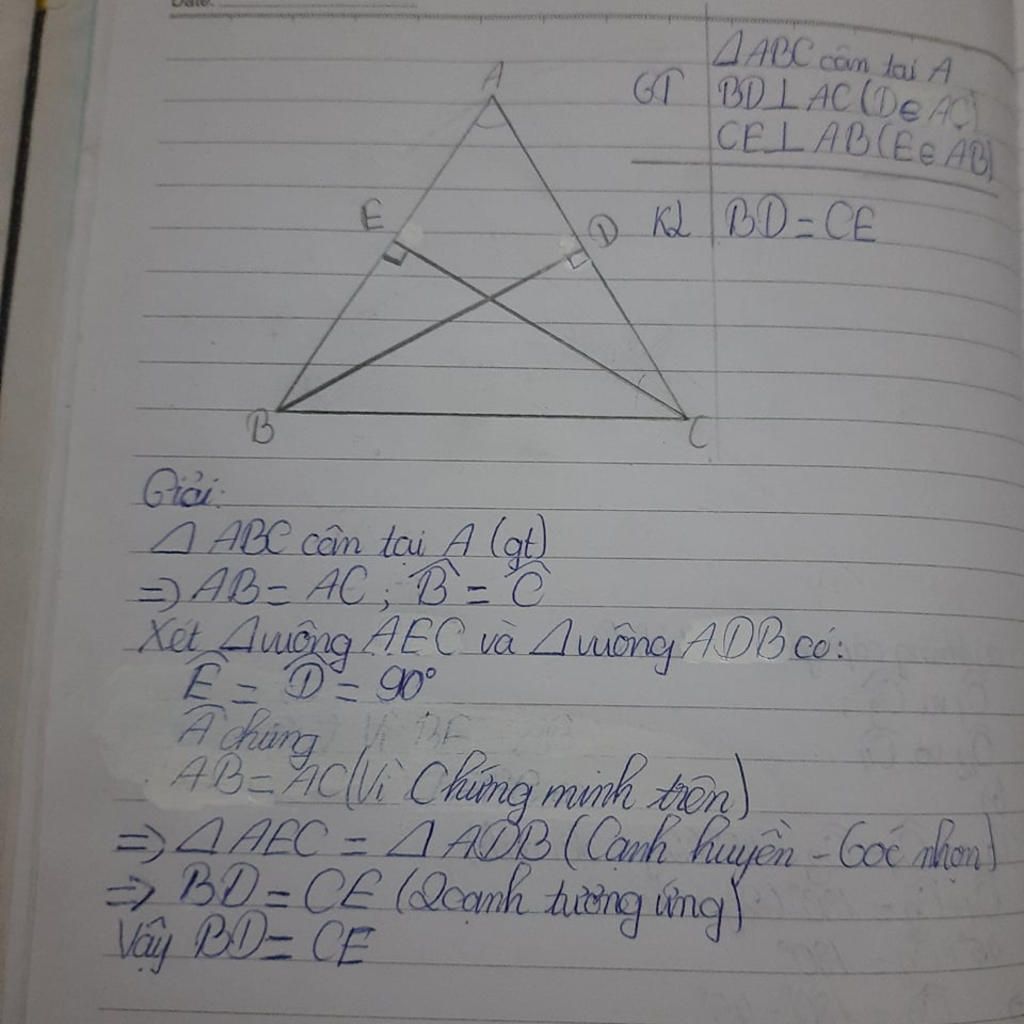 Date:
ΔABC cân tại A
GT BD⊥AC(D∈AC)
CE⊥AB(E∈AB)
KL BD=CE
A
E
D
B
C
Giải:
Δ ABC cân tại A (gt)
=> AB = AC; B̂ = Ĉ
Xét Δ vuông AEC và Δ vuông ADB có:
Ê = D̂ = 90°
Â chung
AB = AC (Vì Chứng minh trên)
=> Δ AEC = Δ ADB (Cạnh huyền - Góc nhọn)
=> BD = CE (2 cạnh tương ứng)
Vậy BD = CE